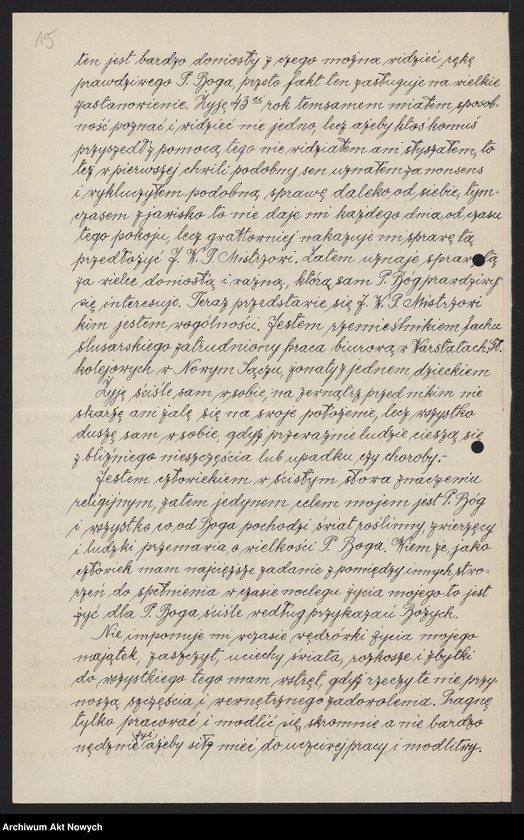 15
ten jest bardzo doniosły z czego można widzieć rękę
prawdziwego P. Boga, przeto fakt ten zasługuje na wielkie
zastanowienie. Żyję 43ci rok temsamem miałem sposob-
ność poznać i widzieć nie jedno, lecz ażeby ktoś komuś
przyszedł z pomocą tego nie widziałem ani słyszałem, to
też w pierwszej chwili podobny sen uznałem za nonsens
i wykluczyłem podobną sprawę daleko od siebie, tym-
czasem zjawisko to nie daje mi każdego dnia od czasu
tego pokoju, lecz gwałtowniej nakazuje mi sprawę tą
przedłożyć J. W. P. Mistrzowi. Zatem uznaję sprawę tą
za wielce doniosłą i ważną, którą sam P. Bóg prawdziwy
się interesuje. Teraz przedstawię się J. W. P. Mistrzowi
kim jestem wogólności. Jestem rzemieślnikiem fachu
ślusarskiego zatrudniony pracą biurową w Warsztatach
kolejowych w Nowym Sączu, żonaty z jednem dzieckiem
Żyję ściśle sam w sobie, na zewnątrz przed nikim nie
skarżę ani żalę się na swoje położenie, lecz wszystko
duszę sam w sobie, gdyż przeważnie ludzie cieszą się
z bliźniego nieszczęścia lub upadku czy choroby.-
Jestem człowiekiem w ścisłym słowa znaczeniu
religijnym, zatem jedynem celem mojem jest P. Bóg
i wszystko co od Boga pochodzi świat roślinny, zwierzęcy
i ludzki przemawia o wielkości P. Boga. Wiem że, jako
człowiek mam najcięższe zadanie z pomiędzy innych stwo-
rzeń do spełnienia w czasie noclegu życia mojego to jest
żyć dla P. Boga ściśle według przykazań Bożych.
Nie imponuje mi wczasie wędrówki życia mojego
majątek, zaszczyt, uciechy świata, rozkosze i zbytki
do wszystkiego tego mam wstręt, gdyż rzeczy te nie przy-
noszą szczęścia i wewnętrznego zadowolenia. Pragnę
tylko pracować i modlić się, skromnie a nie bardzo
nędznie żyć ażeby siłę mieć do uczciwej pracy i modlitwy.
Archiwum Akt Nowych